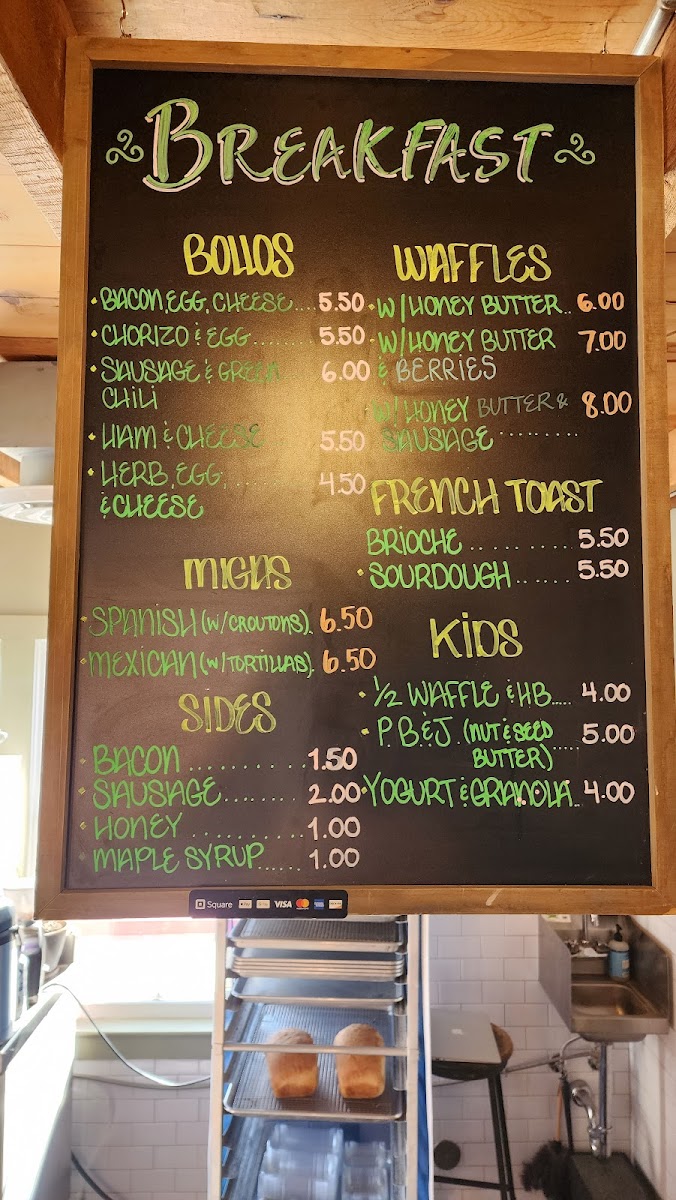 BREAKFAST
BOLLOS
• BACON, EGG, CHEESE.... 5.50
• CHORIZO & EGG........ 5.50
• SAUSAGE & GREEN 6.00
CHILI
• HAM & CHEESE 5.50
• HERB, EGG, ........ 4.50
& CHEESE
MIGAS
• SPANISH (W/CROUTONS). 6.50
• MEXICAN (W/TORTILLAS). 6.50
SIDES
• BACON .......... 1.50
• SAUSAGE........ 2.00
• HONEY .......... 1.00
• MAPLE SYRUP...... 1.00
WAFFLES
• W/HONEY BUTTER.. 6.00
• W/HONEY BUTTER 7.00
& BERRIES
W/HONEY BUTTER & 8.00
SAUSAGE ........
FRENCH TOAST
BRIOCHE .......... 5.50
• SOURDOUGH...... 5.50
KIDS
• 1/2 WAFFLE & HB..... 4.00
• P.B.&J. (NUT & SEED 5.00
BUTTER).....
• YOGURT & GRANOLA.. 4.00
Square VISA